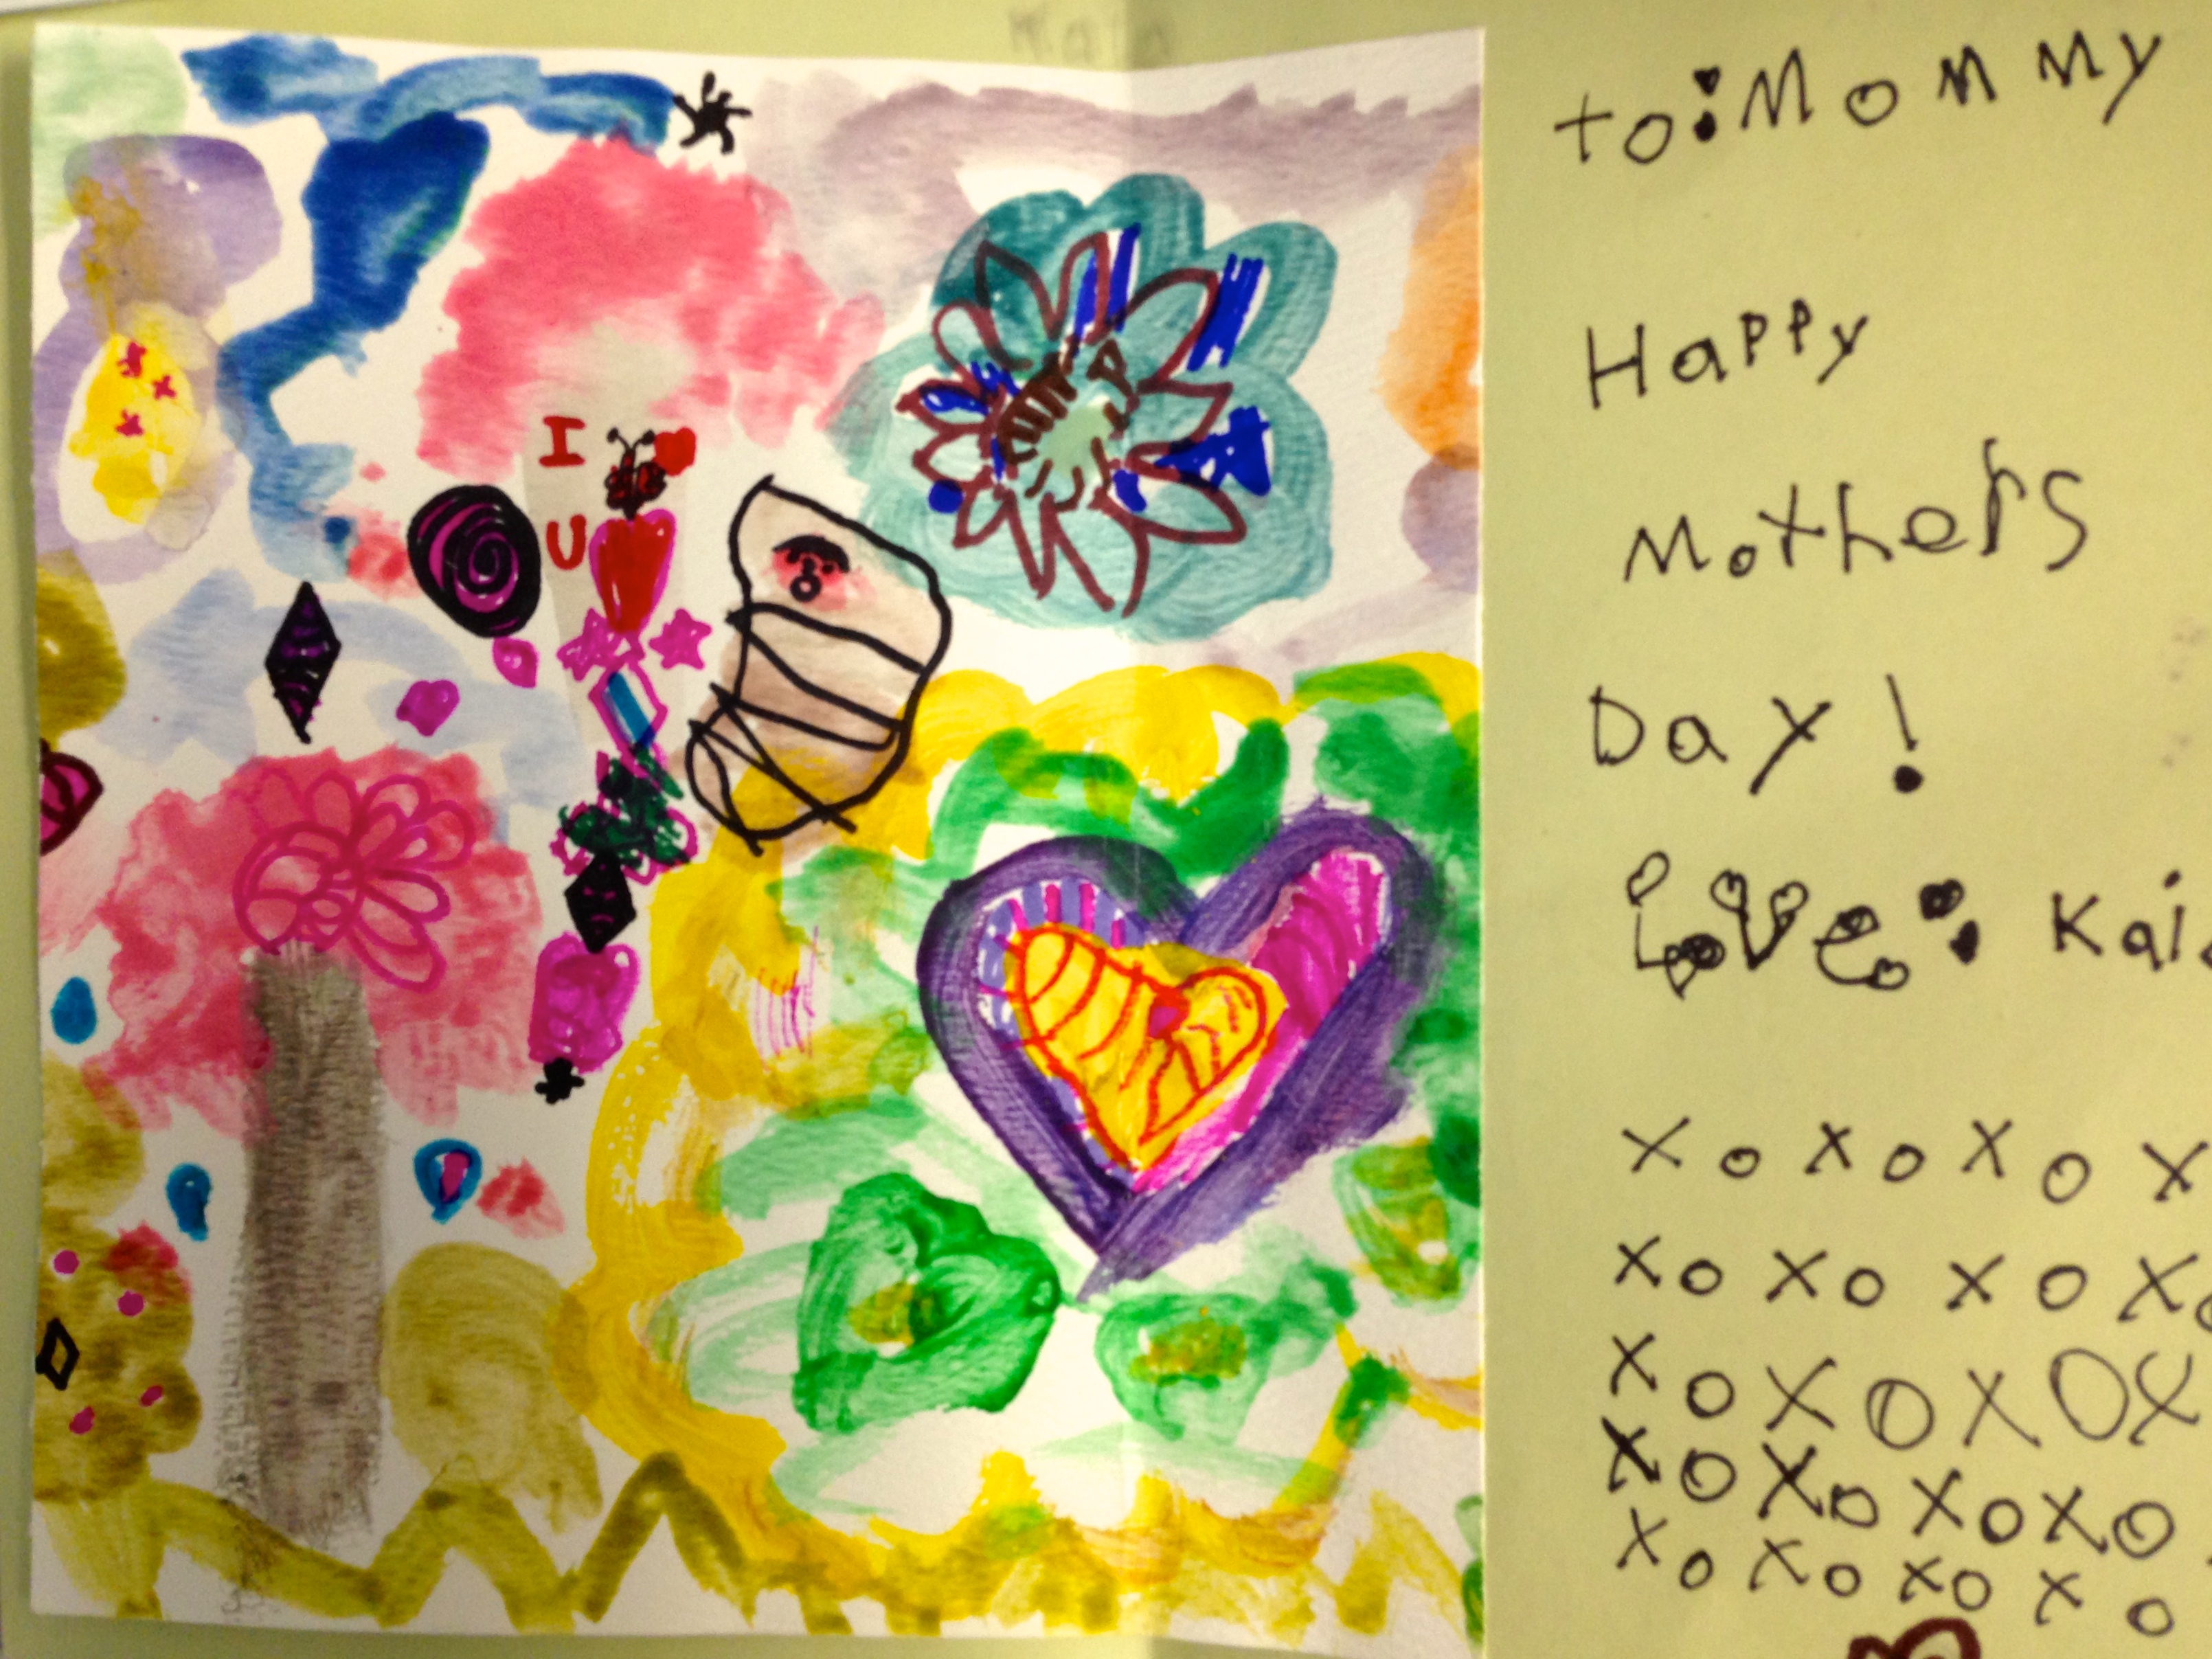 I
U
to: Mommy
Happy
Mothers
Day!
Love: Kai
X o X o X o X
X o X o X o X o
X o X O X O X
X O X o X o X o
X o X o X o X o